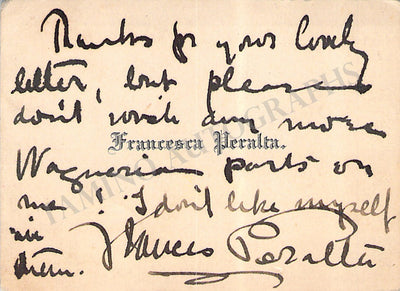 Thanks for your lovely
letter, but please
don't wish any more
Francesca Peralta.
Wagnerian parts on
me! I don't like myself
in
them.
Frances Peralta
TAMINO AUTOGRAPHS